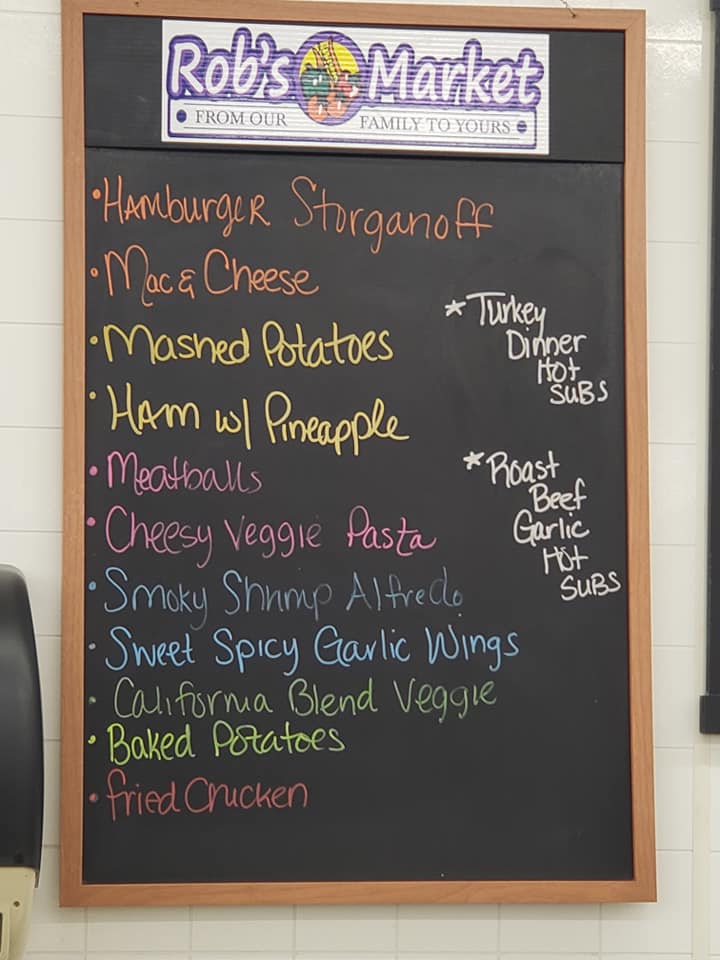 Rob's Market
FROM OUR FAMILY TO YOURS
• Hamburger Storganoff
• Mac & Cheese
• Mashed Potatoes
• Ham w/ Pineapple
• Meatballs
• Cheesy Veggie Pasta
• Smoky Shrimp Alfredo
• Sweet Spicy Garlic Wings
• California Blend Veggie
• Baked Potatoes
• Fried Chicken
* Turkey
Dinner
Hot
SUBS
* Roast
Beef
Garlic
Hot
SUBS